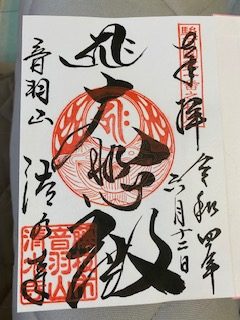 奉拝
令和四年
六月十二日
大悲殿
音羽山
清水寺
音羽山
清水寺